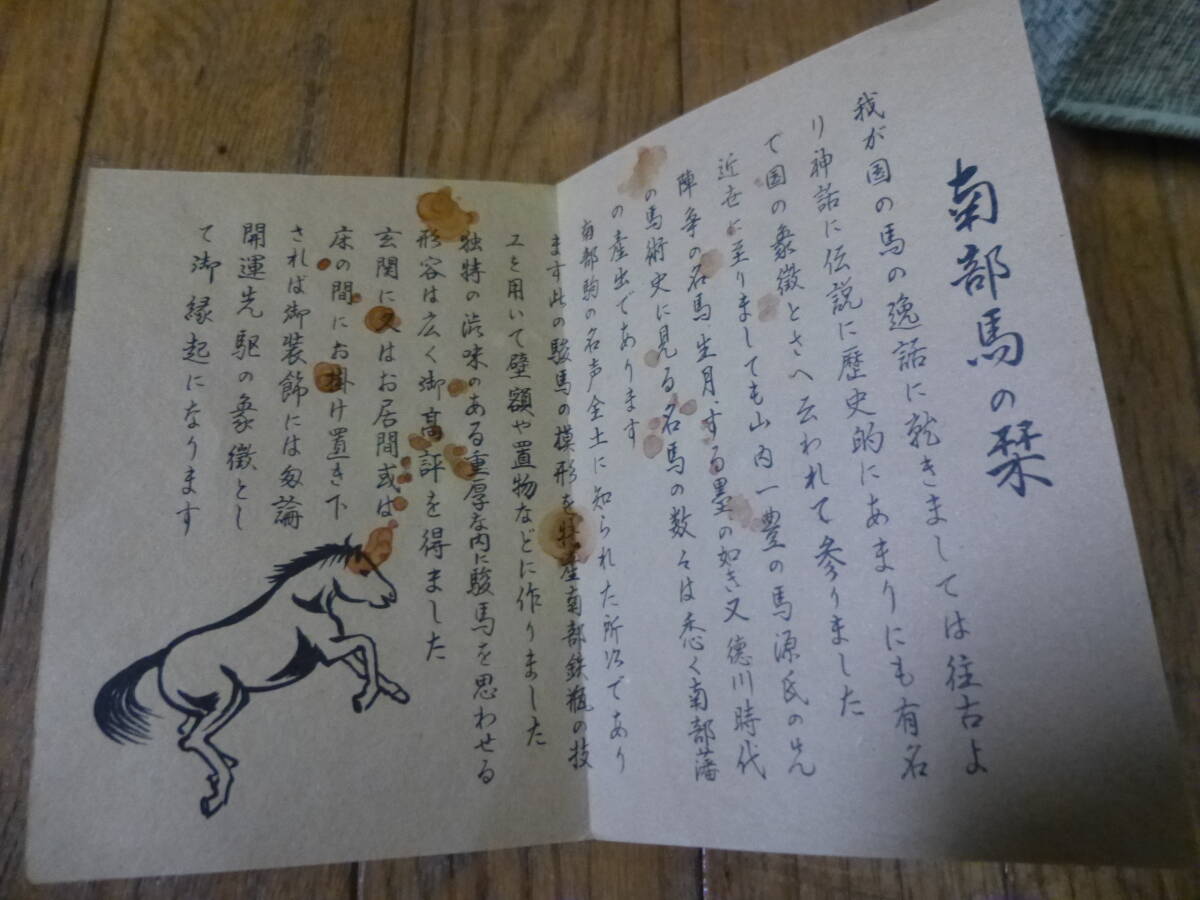 南部馬の栞
我が国の馬の逸話に就きましては往古よ
り神話に伝説に歴史的にあまりにも有名
で国の象徴とさへ云われて参りました
近世に至りましても山内一豊の馬源氏の先
陣争の名馬、生月、する墨の如き又徳川時代
の馬術史に見る名馬の数々は悉く南部藩
の産出であります
南部駒の名声全土に知られた所以であり
ます此の駿馬の模形を特産南部鉄瓶の技
工を用いて壁額や置物などに作りました
独特の渋味のある重厚な内に駿馬を思わせる
形容は広く御高評を得ました
玄関に又はお居間或は
床の間にお掛け置き下
されば御装飾には勿論
開運先駆の象徴とし
て御縁起になります